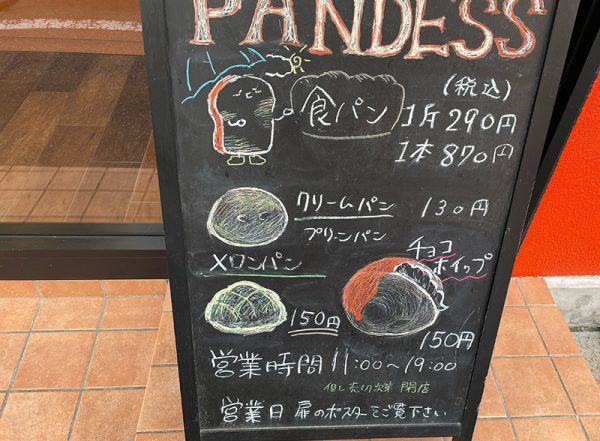 PANDESS
(税込)
食パン 1斤 290円
1本 870円
クリームパン 130円
プリンパン
メロンパン
チョコ
ホイップ
150円
150円
営業時間 11:00～19:00
但し売切次第 閉店
営業日 扉のポスターをご覧下さい